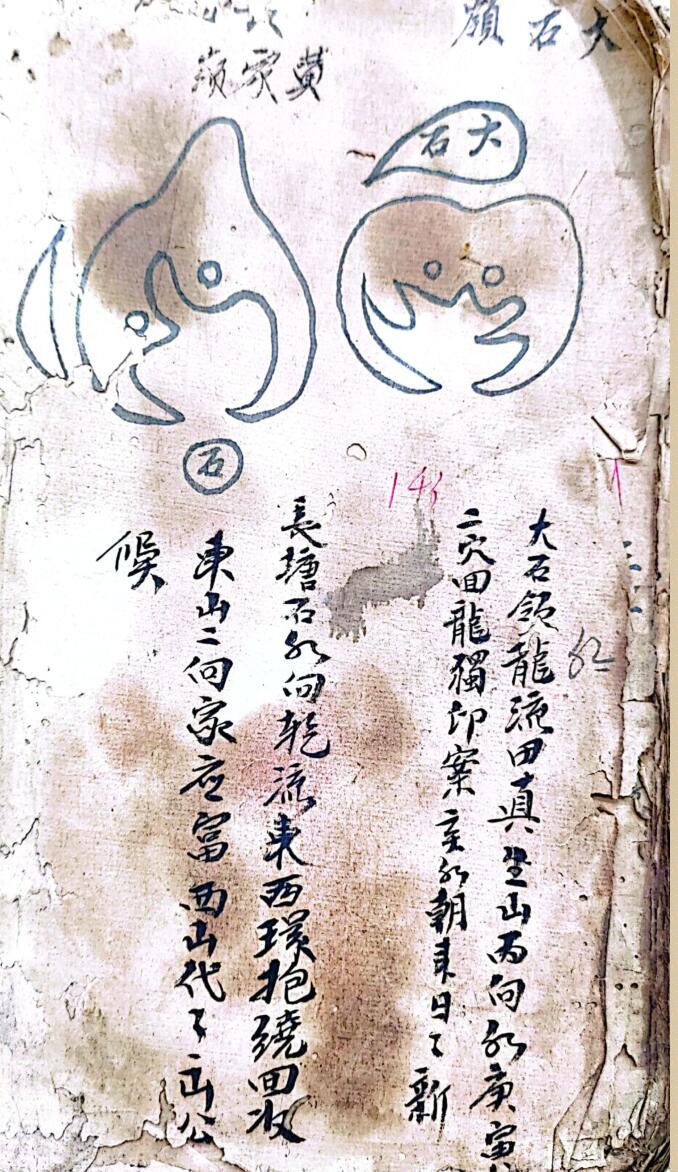 大石嶺
黄家嶺
大石
石
143
大石領龍流田真坐山丙向水庚富
二穴回龍獨印案亥水朝来日々新
長塘石水向乾流東西環抱繞回收
東山二向家应富西山代々出公
候